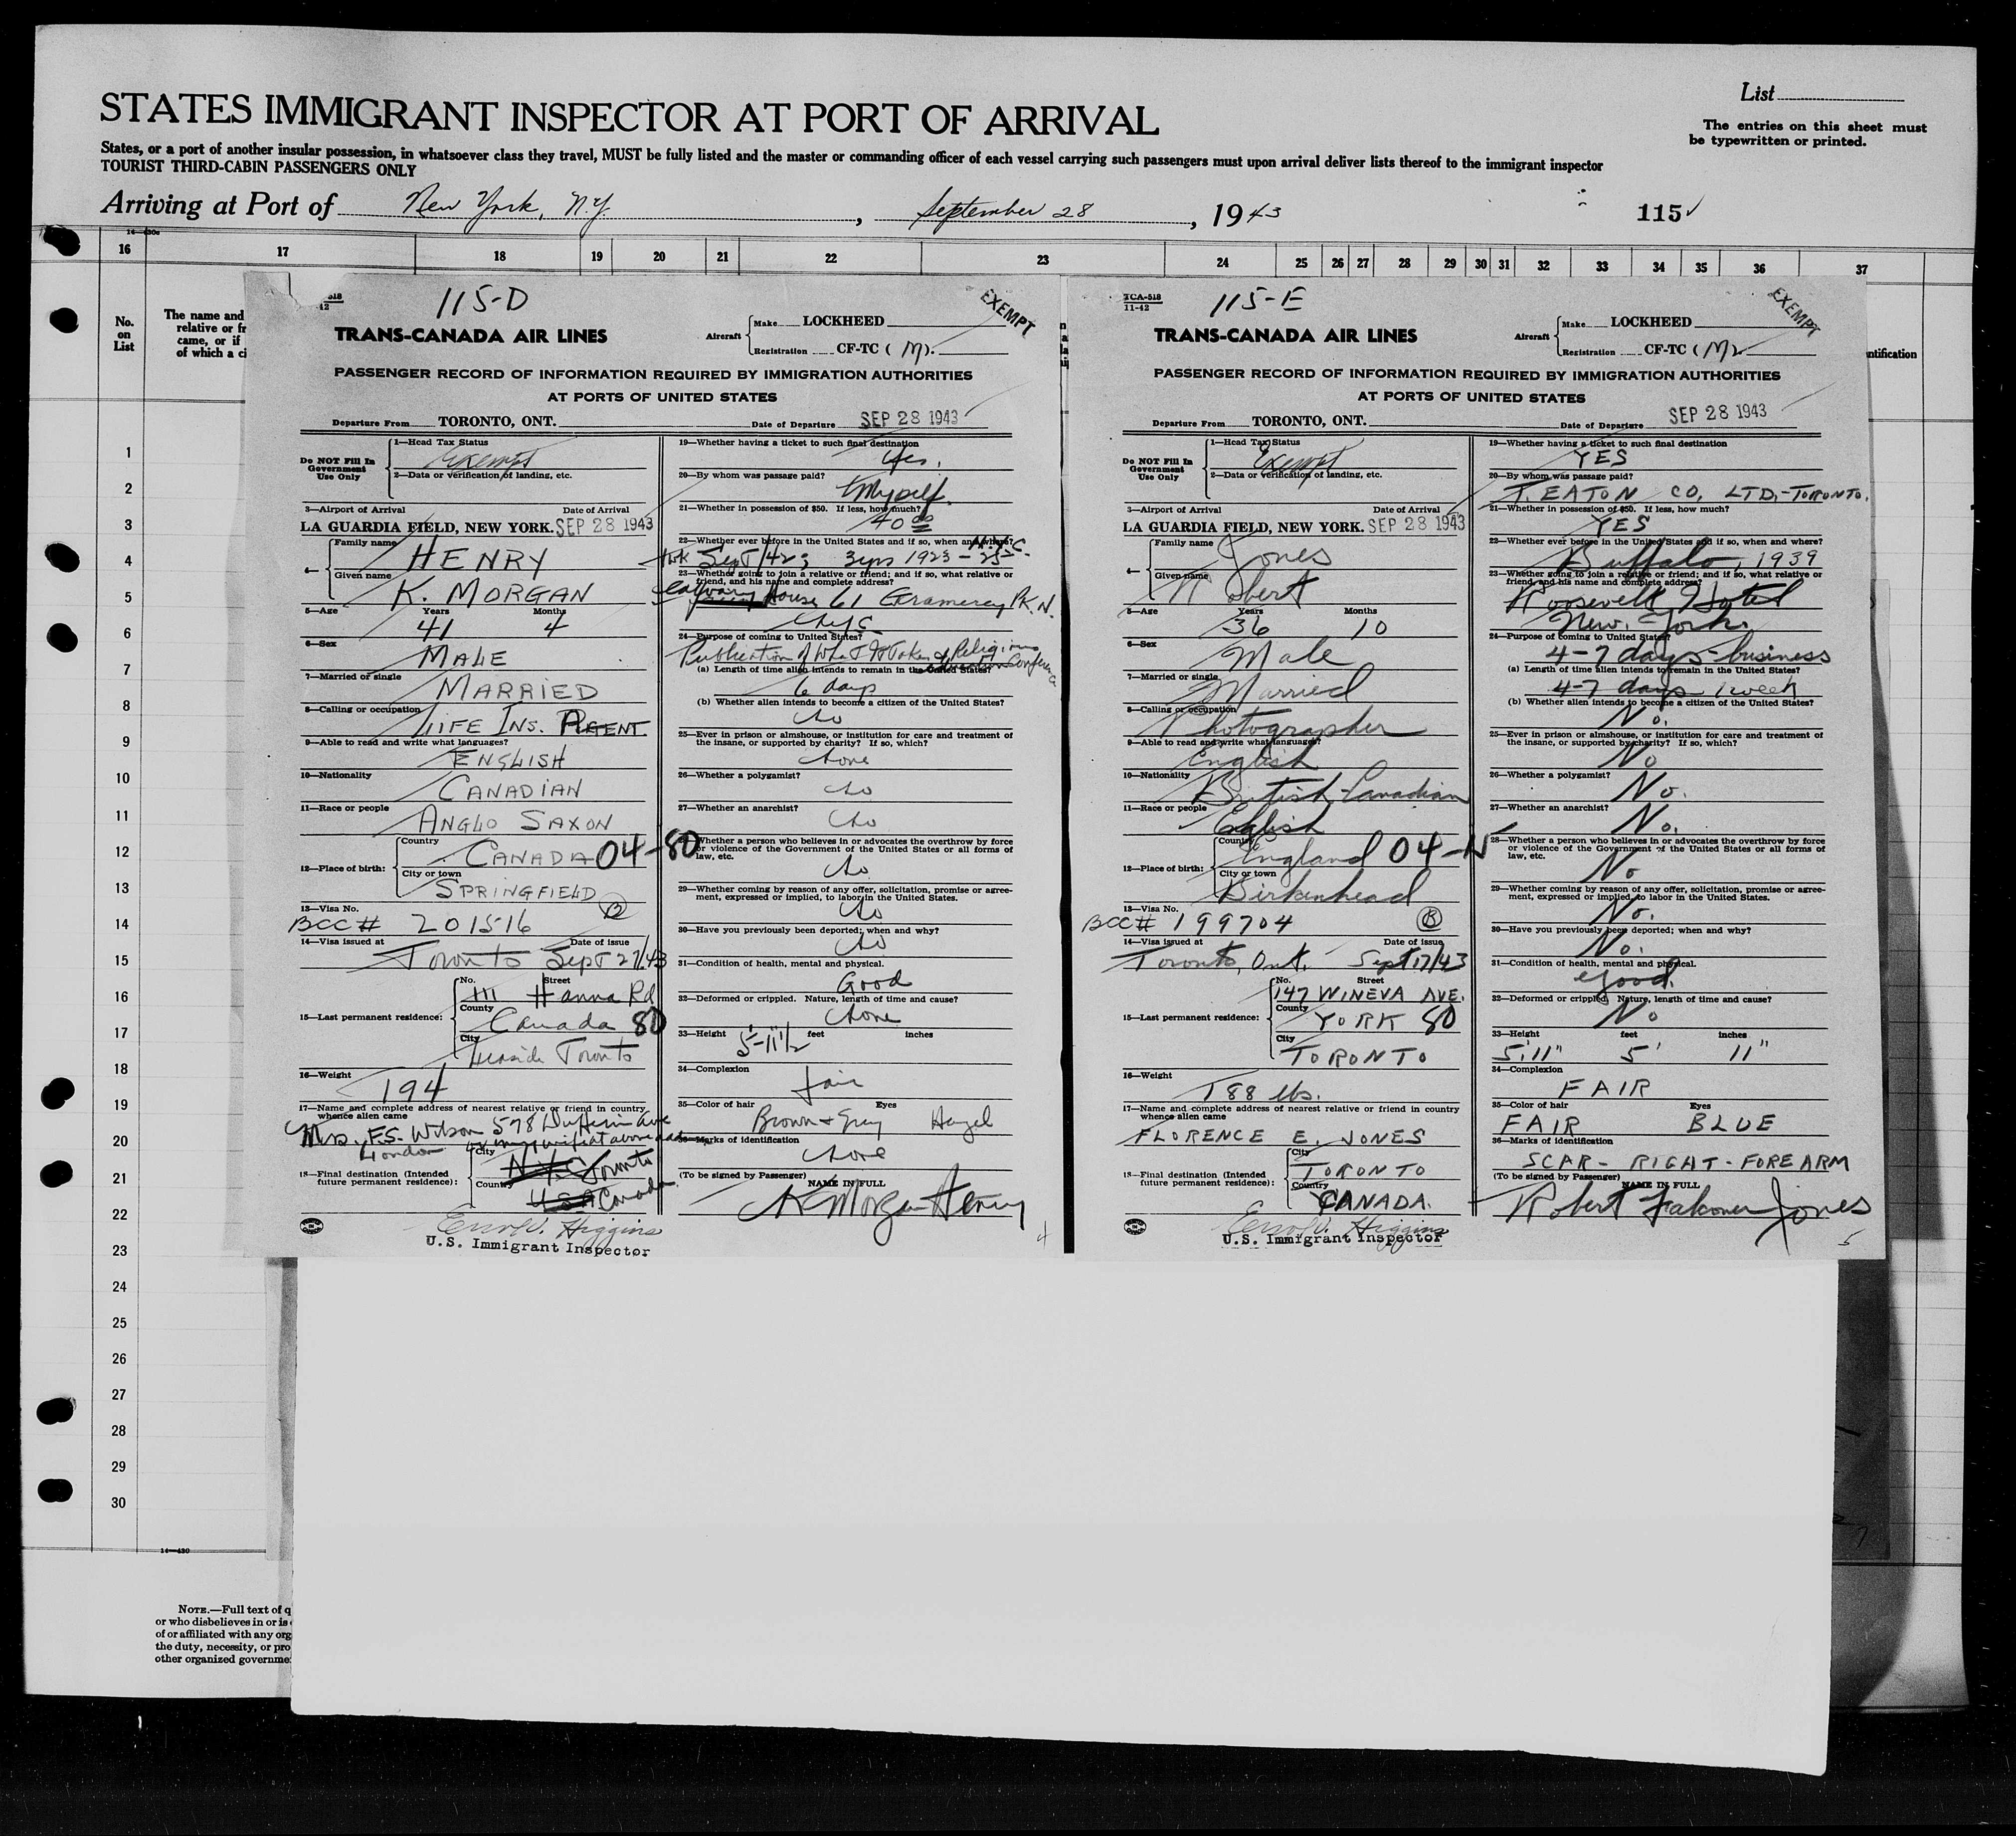 STATES IMMIGRANT INSPECTOR AT PORT OF ARRIVAL
List
The entries on this sheet must
be typewritten or printed.
States, or a port of another insular possession, in whatsoever class they travel, MUST be fully listed and the master or commanding officer of each vessel carrying such passengers must upon arrival deliver lists thereof to the immigrant inspector
TOURIST THIRD-CABIN PASSENGERS ONLY
Arriving at Port of New York, N.Y. , September 28 , 1943 115
16 17 18 19 20 21 22 23 24 25 26 27 28 29 30 31 32 33 34 35 36 37
No.
on
List
The name and
relative or fr
came, or if
of which a ci
ntification
1
2
3
4
5
6
7
8
9
10
11
12
13
14
15
16
17
18
19
20
21
22
23
24
25
26
27
28
29
30
14-430
NOTE.—Full text of q
or who disbelieves in or is
of or affiliated with any org
the duty, necessity, or pro
other organized governme
115-D
EXEMPT
TRANS-CANADA AIR LINES
Aircraft Make LOCKHEED
Registration CF-TC (M).
PASSENGER RECORD OF INFORMATION REQUIRED BY IMMIGRATION AUTHORITIES
AT PORTS OF UNITED STATES
Departure From TORONTO, ONT. Date of Departure SEP 28 1943
Do NOT Fill In
Government
Use Only
1—Head Tax Status
Exempt
2—Data or verification of landing, etc.
3—Airport of Arrival Date of Arrival
LA GUARDIA FIELD, NEW YORK. SEP 28 1943
4— Family name
HENRY
Given name
K. MORGAN
5—Age Years Months
41 4
6—Sex
MALE
7—Married or single
MARRIED
8—Calling or occupation
LIFE INS. AGENT.
9—Able to read and write what languages?
ENGLISH
10—Nationality
CANADIAN
11—Race or people
ANGLO SAXON
12—Place of birth: Country
CANADA 04-80
City or town
SPRINGFIELD
13—Visa No. B
BCC# 201516
14—Visa issued at Date of issue
Toronto Sept 27/43
15—Last permanent residence: No. Street
111 Hanna Rd
County
Canada 80
City
Leaside Toronto
16—Weight
194
17—Name and complete address of nearest relative or friend in country
whence alien came
Mrs. F.S. Wilson 578 Dufferin Ave
London or my wife at above add
18—Final destination (Intended
future permanent residence): City
N.Y.C. Toronto
Country
U.S.A Canada
U.S. Immigrant Inspector
19—Whether having a ticket to such final destination
Yes.
20—By whom was passage paid?
Myself.
21—Whether in possession of $50. If less, how much?
40 00
22—Whether ever before in the United States and if so, when and where?
Sept/42; 3 yrs 1923-25 N.Y.C.
23—Whether going to join a relative or friend; and if so, what relative or
friend, and his name and complete address?
Calvary House 61 Gramercy Pk. N.
N.Y.C.
24—Purpose of coming to United States?
Publication of What It Takes & Religious Conference
(a) Length of time alien intends to remain in the United States?
6 days
(b) Whether alien intends to become a citizen of the United States?
No
25—Ever in prison or almshouse, or institution for care and treatment of
the insane, or supported by charity? If so, which?
None
26—Whether a polygamist?
No
27—Whether an anarchist?
No
28—Whether a person who believes in or advocates the overthrow by force
or violence of the Government of the United States or all forms of
law, etc.
No
29—Whether coming by reason of any offer, solicitation, promise or agree-
ment, expressed or implied, to labor in the United States.
No
30—Have you previously been deported; when and why?
No
31—Condition of health, mental and physical.
Good
32—Deformed or crippled. Nature, length of time and cause?
None
33—Height feet inches
5'-11 1/2"
34—Complexion
Fair
35—Color of hair Eyes
Brown & Grey Hazel
36—Marks of identification
None
(To be signed by Passenger) NAME IN FULL
K Morgan Henry
4
TCA-518
11-42
115-E
EXEMPT
TRANS-CANADA AIR LINES
Aircraft Make LOCKHEED
Registration CF-TC (M)
PASSENGER RECORD OF INFORMATION REQUIRED BY IMMIGRATION AUTHORITIES
AT PORTS OF UNITED STATES
Departure From TORONTO, ONT. Date of Departure SEP 28 1943
Do NOT Fill In
Government
Use Only
1—Head Tax Status
Exempt
2—Data or verification of landing, etc.
3—Airport of Arrival Date of Arrival
LA GUARDIA FIELD, NEW YORK. SEP 28 1943
4— Family name
Jones
Given name
Robert
5—Age Years Months
36 10
6—Sex
Male
7—Married or single
Married
8—Calling or occupation
Photographer
9—Able to read and write what languages?
English
10—Nationality
British-Canadian
11—Race or people
English
12—Place of birth: Country
England 04-N
City or town
Birkenhead
13—Visa No. B
BCC# 199704
14—Visa issued at Date of issue
Toronto, Ont. Sept 17/43
15—Last permanent residence: No. Street
147 WINEVA AVE.
County
YORK 80
City
TORONTO
16—Weight
188 lbs.
17—Name and complete address of nearest relative or friend in country
whence alien came
FLORENCE E. JONES
18—Final destination (Intended
future permanent residence): City
TORONTO
Country
CANADA.
U.S. Immigrant Inspector
19—Whether having a ticket to such final destination
YES
20—By whom was passage paid?
T. EATON CO. LTD.-TORONTO.
21—Whether in possession of $50. If less, how much?
YES
22—Whether ever before in the United States and if so, when and where?
Buffalo, 1939
23—Whether going to join a relative or friend; and if so, what relative or
friend, and his name and complete address?
Roosevelt Hotel
New York.
24—Purpose of coming to United States?
4-7 days-business
(a) Length of time alien intends to remain in the United States?
4-7 days 1 week
(b) Whether alien intends to become a citizen of the United States?
No.
25—Ever in prison or almshouse, or institution for care and treatment of
the insane, or supported by charity? If so, which?
No
26—Whether a polygamist?
No.
27—Whether an anarchist?
No.
28—Whether a person who believes in or advocates the overthrow by force
or violence of the Government of the United States or all forms of
law, etc.
No
29—Whether coming by reason of any offer, solicitation, promise or agree-
ment, expressed or implied, to labor in the United States.
No.
30—Have you previously been deported; when and why?
No.
31—Condition of health, mental and physical.
Good.
32—Deformed or crippled. Nature, length of time and cause?
No
33—Height feet inches
5'11" 5' 11"
34—Complexion
FAIR
35—Color of hair Eyes
FAIR BLUE
36—Marks of identification
SCAR- RIGHT-FOREARM
(To be signed by Passenger) NAME IN FULL
Robert Falconer Jones
5